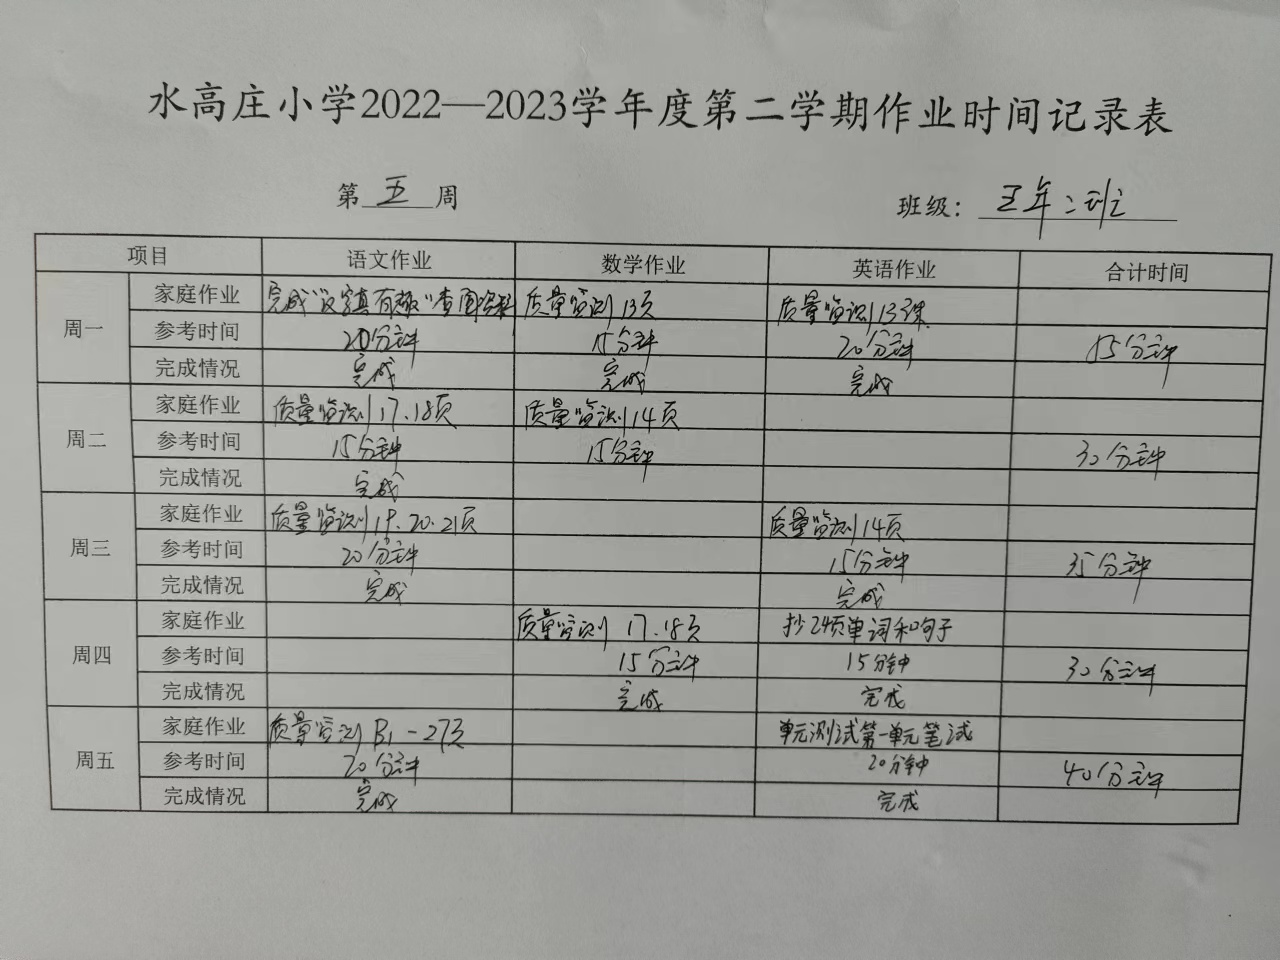 水高庄小学2022—2023学年度第二学期作业时间记录表
第五周 班级：五年二班
项目 语文作业 数学作业 英语作业 合计时间
周一
家庭作业 完成“汉字真有趣”查阅资料 质量监测13页 质量监测13课
参考时间 20分钟 15分钟 20分钟 55分钟
完成情况 完成 完成 完成
周二
家庭作业 质量监测17.18页 质量监测14页
参考时间 15分钟 15分钟 30分钟
完成情况 完成
周三
家庭作业 质量监测19.20.21页 质量监测14页
参考时间 20分钟 15分钟 35分钟
完成情况 完成 完成
周四
家庭作业 质量监测17.18页 抄24页单词和句子
参考时间 15分钟 15分钟 30分钟
完成情况 完成 完成
周五
家庭作业 质量监测 -27页 单元测试第一单元笔试
参考时间 20分钟 20分钟 40分钟
完成情况 完成 完成